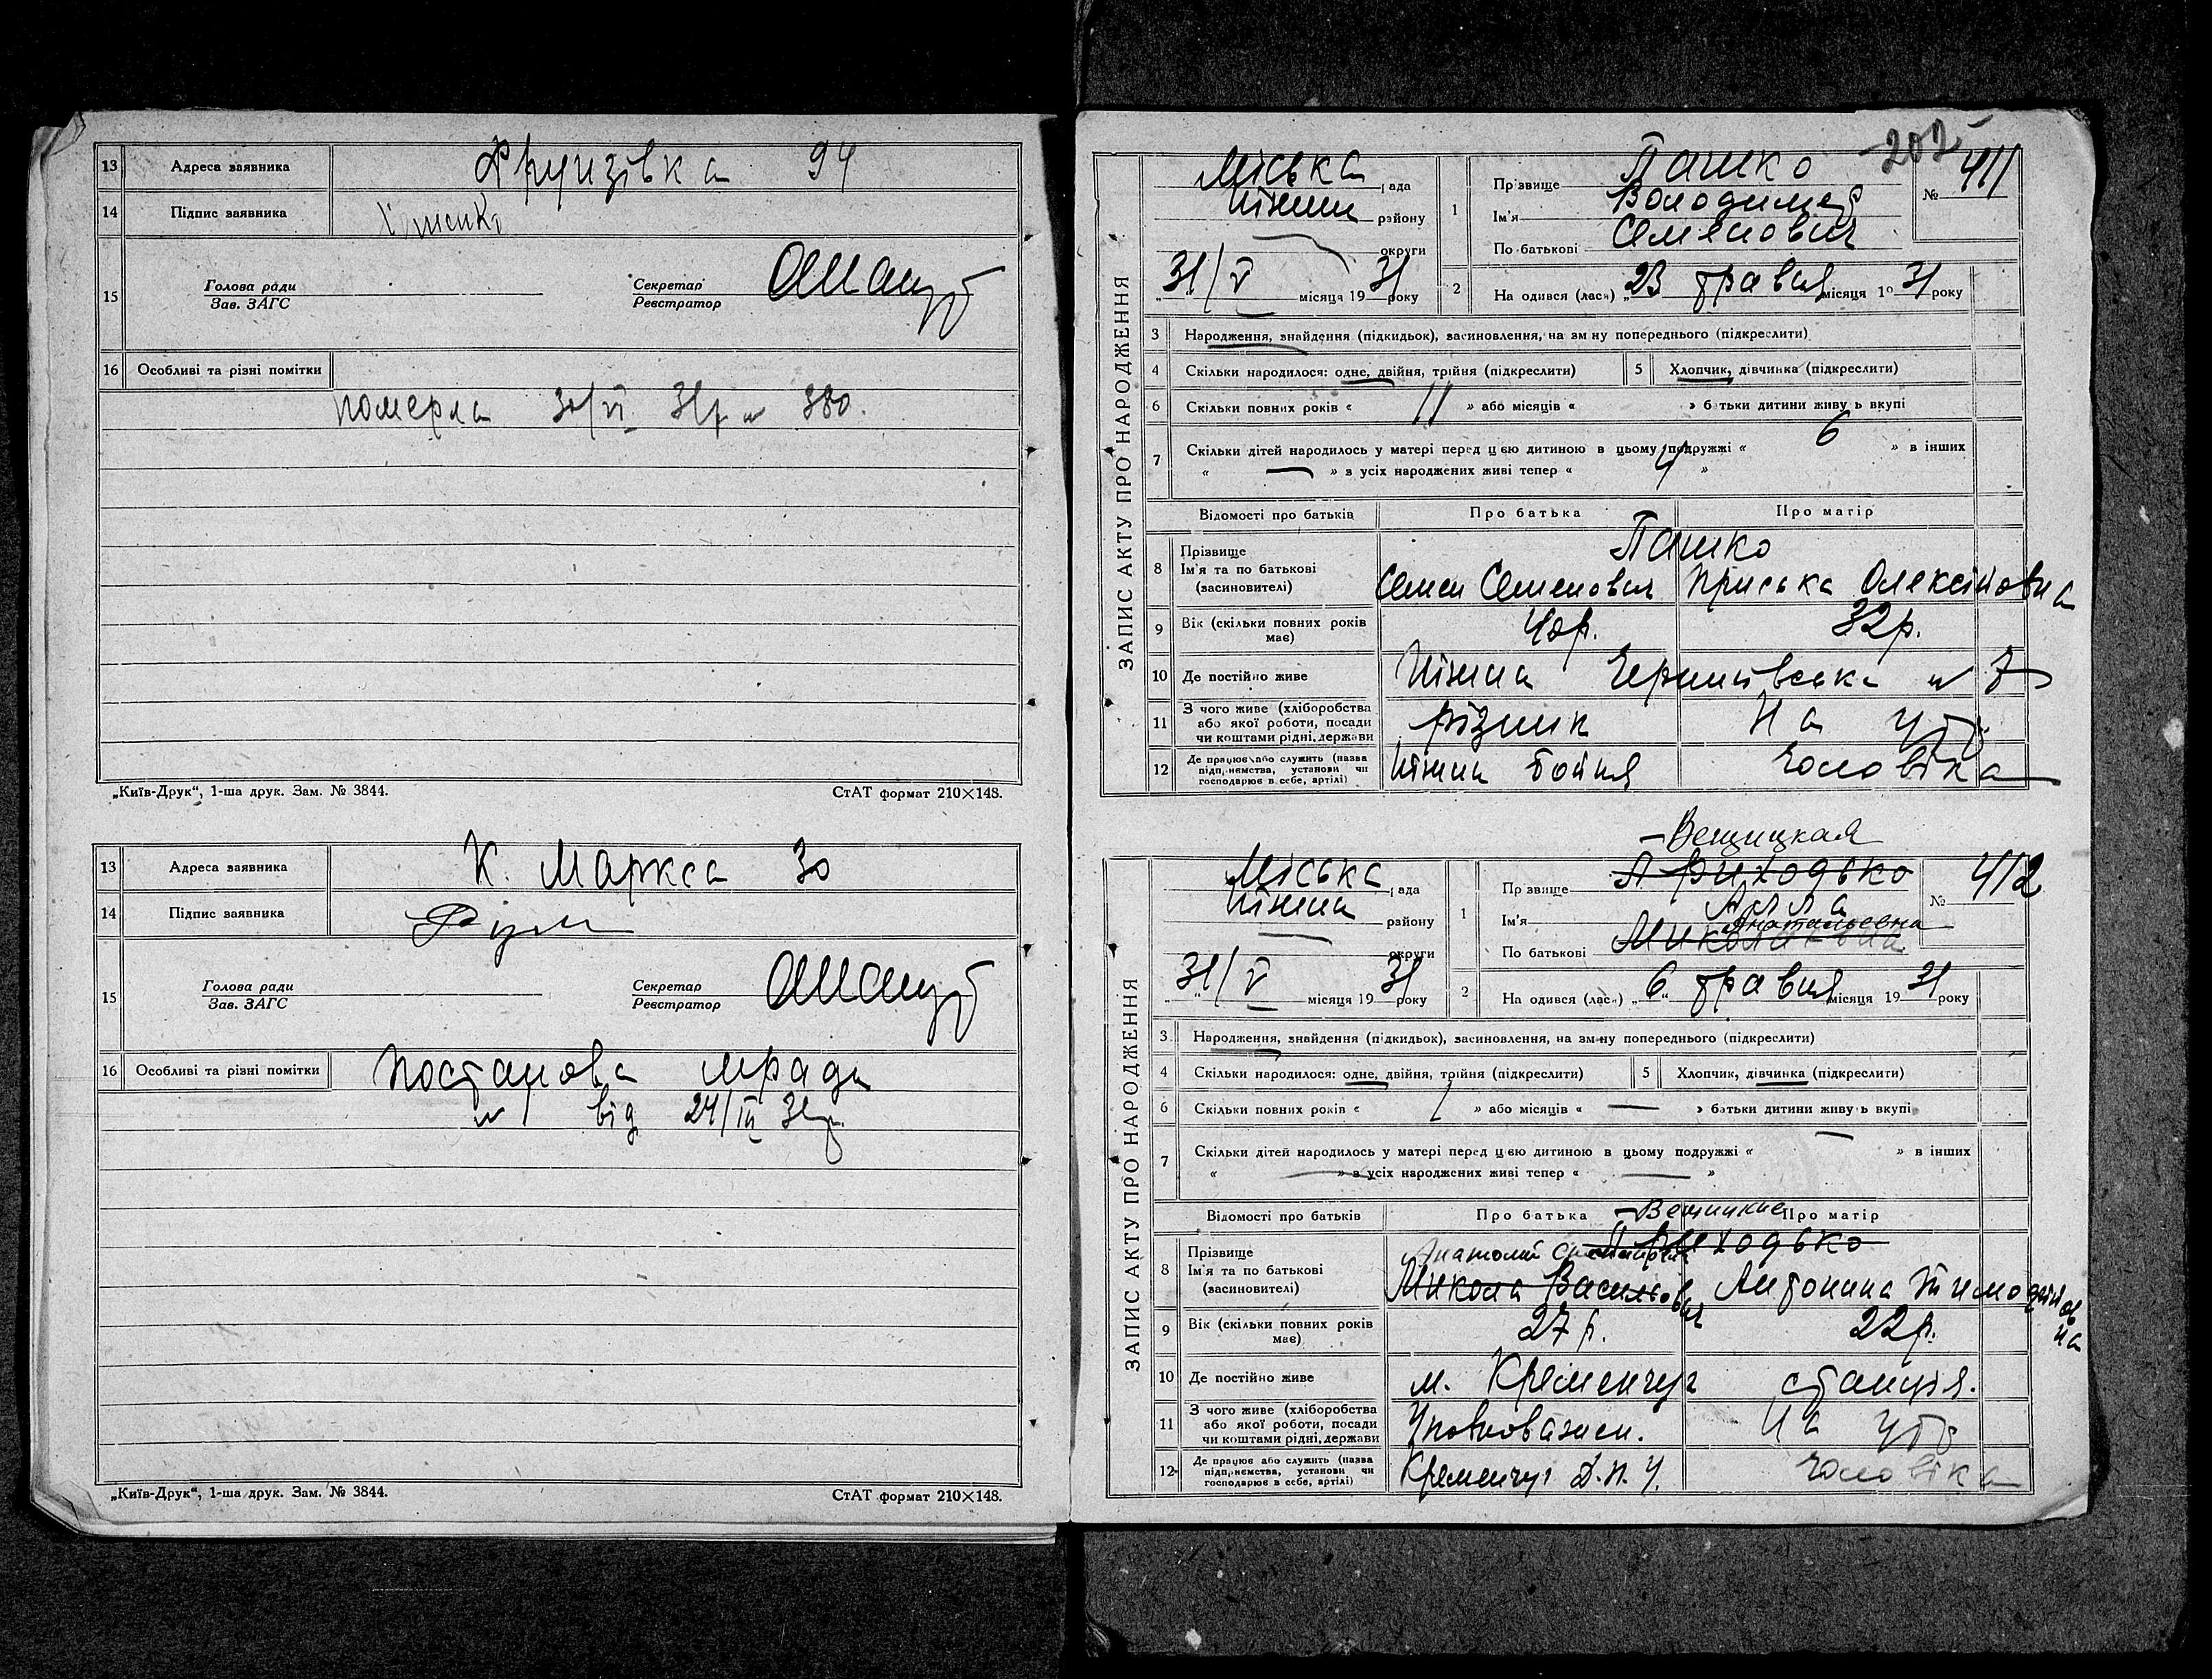 13 Адреса заявника Фрунзівка 94
14 Підпис заявника
15 Голова ради
Зав. ЗАГС
Секретар
Реєстратор
16 Особливі та різні помітки
померла 30/VI 31р № 380.
„Київ-Друк“, 1-ша друк. Зам. № 3844. СтАТ формат 210×148.
13 Адреса заявника К. Маркса 30
14 Підпис заявника
15 Голова ради
Зав. ЗАГС
Секретар
Реєстратор
16 Особливі та різні помітки Постанова мради
№ 1 від 24/III 31р.
„Київ-Друк“, 1-ша друк. Зам. № 3844. СтАТ формат 210×148.
202
ЗАПИС АКТУ ПРО НАРОДЖЕННЯ
Міська рада
Ніжин району
округи
31/V місяця 1931 року
1 Прізвище Пашко
Ім'я Володимер
По батькові Семенович
№ 411
2 Народився (лася) „23 травня місяця 1931 року
3 Народження, знайдення (підкидьок), засиновлення, на зміну попереднього (підкреслити)
4 Скільки народилося: одне, двійня, трійня (підкреслити) 5 Хлопчик, дівчинка (підкреслити)
6 Скільки повних років « 11 » або місяців « » батьки дитини живуть вкупі
7 Скільки дітей народилось у матері перед цією дитиною в цьому подружжі « 6 » в інших
« — » з усіх народжених живі тепер « 4 »
Відомості про батьків Про батька Про матір
8 Прізвище Пашко
Ім'я та по батькові Семен Семенович Приська Олексіївна
(засиновителі)
9 Вік (скільки повних років має) 40р. 32р.
10 Де постійно живе Ніжин Чернигівська № 7
11 З чого живе (хліборобства або якої роботи, посади чи коштами рідні, держави різник На утр.
12 Де працює або служить (назва підприємства, установи чи господарює в себе, артілі) Ніжин бойня чоловіка
ЗАПИС АКТУ ПРО НАРОДЖЕННЯ
Вещицкая
Міська рада
Ніжин району
округи
31/V місяця 1931 року
1 Прізвище Приходько
Ім'я Алла
Анатольевна
По батькові Миколаївна
№ 412
2 Народився (лася) „6“ травня місяця 1931 року
3 Народження, знайдення (підкидьок), засиновлення, на зміну попереднього (підкреслити)
4 Скільки народилося: одне, двійня, трійня (підкреслити) 5 Хлопчик, дівчинка (підкреслити)
6 Скільки повних років « 1 » або місяців « — » батьки дитини живуть вкупі
7 Скільки дітей народилось у матері перед цією дитиною в цьому подружжі « — » в інших
« — » з усіх народжених живі тепер « — »
Вещицкие
Відомості про батьків Про батька Про матір
8 Прізвище Приходько
Анатолий
Ім'я та по батькові Микола Васильович Антонина Тимофіївна
(засиновителі)
9 Вік (скільки повних років має) 27р. 22р.
10 Де постійно живе м. Кременчуг станція.
11 З чого живе (хліборобства або якої роботи, посади чи коштами рідні, держави Уповноважен. На утр.
12 Де працює або служить (назва підприємства, установи чи господарює в себе, артілі) Кременчуг Д.П.У. чоловіка